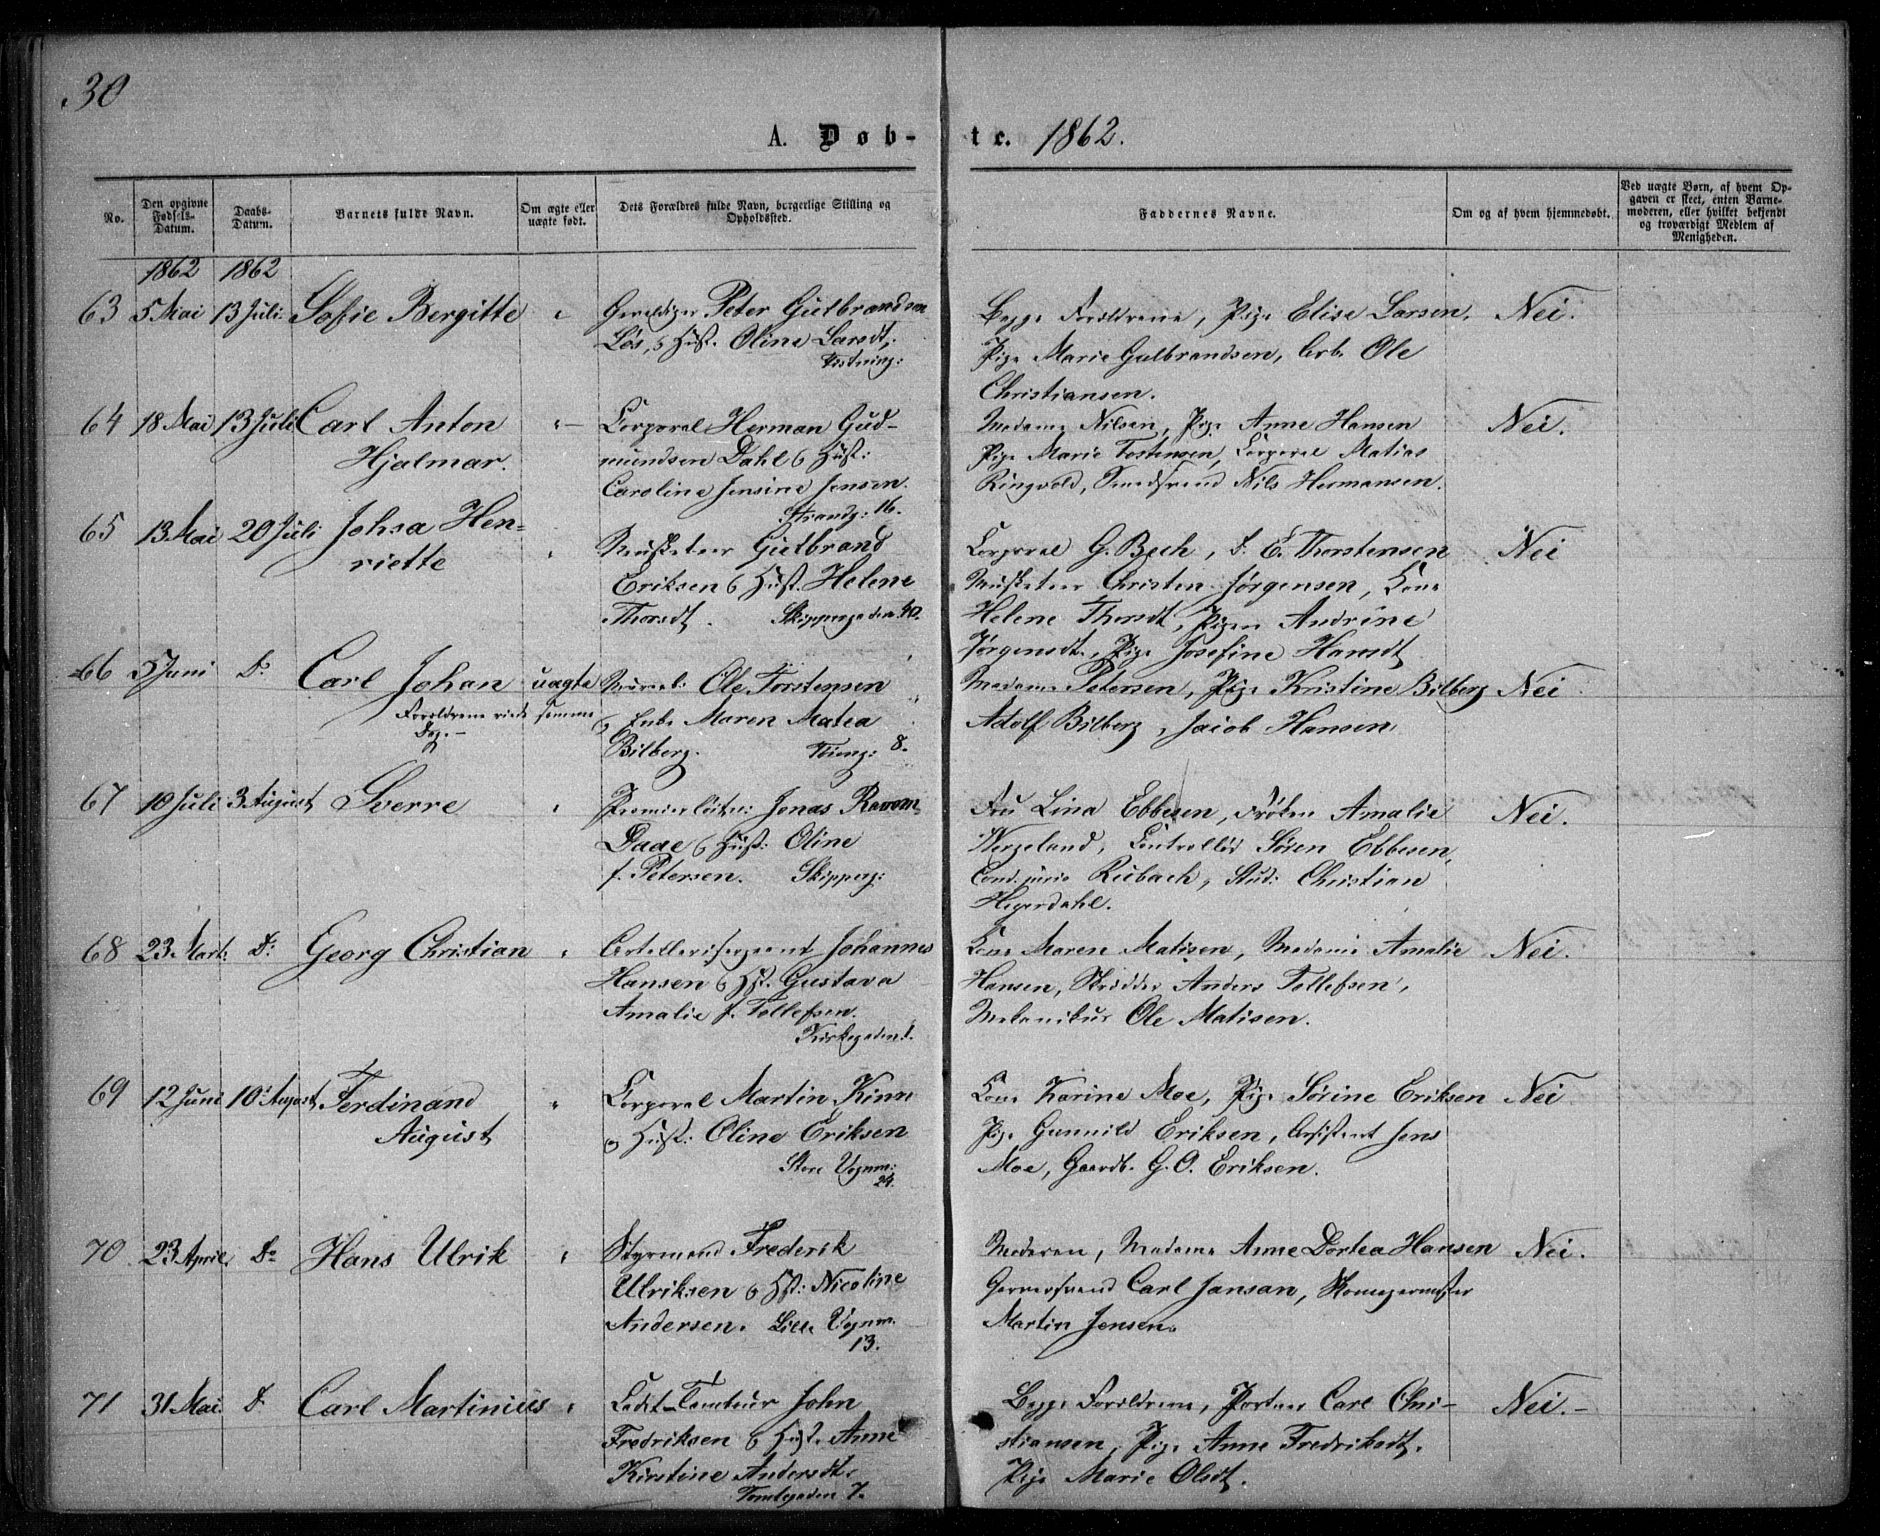 30
A. Døb- te. 1862.
No.
Den opgivne Fødsels-Datum.
Daabs-Datum.
Barnets fulde Navn.
Om ægte eller uægte født.
Dets Forældres fulde Navn, borgerlige Stilling og Opholdssted.
Faddernes Navne.
Om og af hvem hjemmedøbt.
Ved uægte Børn, af hvem Op-
gaven er skeet, enten Barne-
moderen, eller hvilket bekjendt
og troværdigt Medlem af
Menigheden.
1862 1862
63 5 Mai 13 Juli Sofie Bergitte "
Peter Gulbrandsen
Løs, & Hust. Oline Larsdt,
Begge Forældrene, Pige Elise Larsen,
Pige Marie Gulbrandsen, Arb. Ole
Christiansen.
Nei.
64 18 Mai 13 Juli Carl Anton
Hjalmar.
Corporal Herman Gud-
mundsen Dahl & Hust:
Caroline Jensine Jensen.
Strandg: 16.
Madame Nilsen, Pige Anne Hansen
Pige Marie Tostensen, Corporal Matias
Ringvold, Smedsvend Nils Hermansen.
Nei.
65 13 Mai 20 Juli Johsa Hen-
riette
Musketeer Gulbrand
Eriksen & Hust. Helene
Thorsdt. Skippergaden 40.
Corporal G. Bech, D. E. Thorstensen
Musketeer Christen Jørgensen, Kone
Helene Thorsdt, Pigen Andrine
Jørgensdt, Pige Josefine Hansdt
Nei
66 5 Juni Do Carl Johan uægte
Forældrene viede samme
Dag.-
Ole Torstensen
& Enke Maren Matea
Bilberg. 8.
Madame Petersen, Pige Kristine Bilberg
Adolf Bilberg, Jacob Hansen,
Nei
67 10 Juli 3 August Sverre "
Premierløitn: Jonas Ravom
Daae & Hust: Oline
f. Petersen. Skipperg:
Fru Lina Ebbesen, Frøken Amalie
Wergeland, Controllør Søren Ebbesen,
Cand. juris Rubach, Stud: Christian
Hegerdahl.
Nei.
68 23 Marts Do: Georg Christian "
Artellerisergeant Johannes
Hansen & Hst. Gustava
Amalie f. Tollefsen.
Kirkegaden 1.
Kone Maren Matisen, Madame Amalie
Hansen, Skrædder Anders Tollefsen,
Mekanikus Ole Matisen.
Nei.
69 12 Juni 10 August Ferdinand
August
"
Corporal Martin Kinn
& Hust: Oline Eriksen
Store Vognm:
24.
Kone Karine Moe, Pige Sørine Eriksen
Pige Gunnild Eriksen, Assistent Jens
Moe, Gaardb. G. O. Eriksen.
Nei
70 23 April Do Hans Ulrik "
Styrmand Frederik
Ulriksen & Hst: Nicoline
Andersen. Lille Vognm.
13.
Moderen, Madame Anne Dortea Hansen
Garversvend Carl Jansan, Skomagermester
Martin Jensen.
Nei.
71 31 Mai Do Carl Martinius "
John
Fredriksen & Hust. Anne
Kirstine Andersdt.
Tomtegaden 7.
Begge Forældrene, Portner Carl Chri-
stiansen, Pige Anne Fredriksdt.
Pige Marie Olsdt.
Nei.-